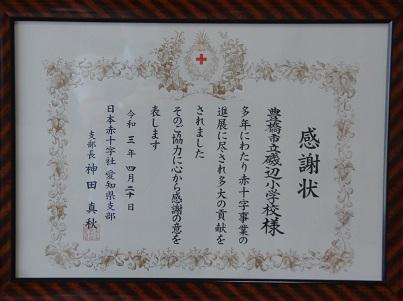 感謝状
豊橋市立磯辺小学校様
多年にわたり赤十字事業の
進展に尽され多大の貢献を
されました
そのご協力に心から感謝の意を
表します
令和三年四月二十日
日本赤十字社愛知県支部
支部長 神田真秋